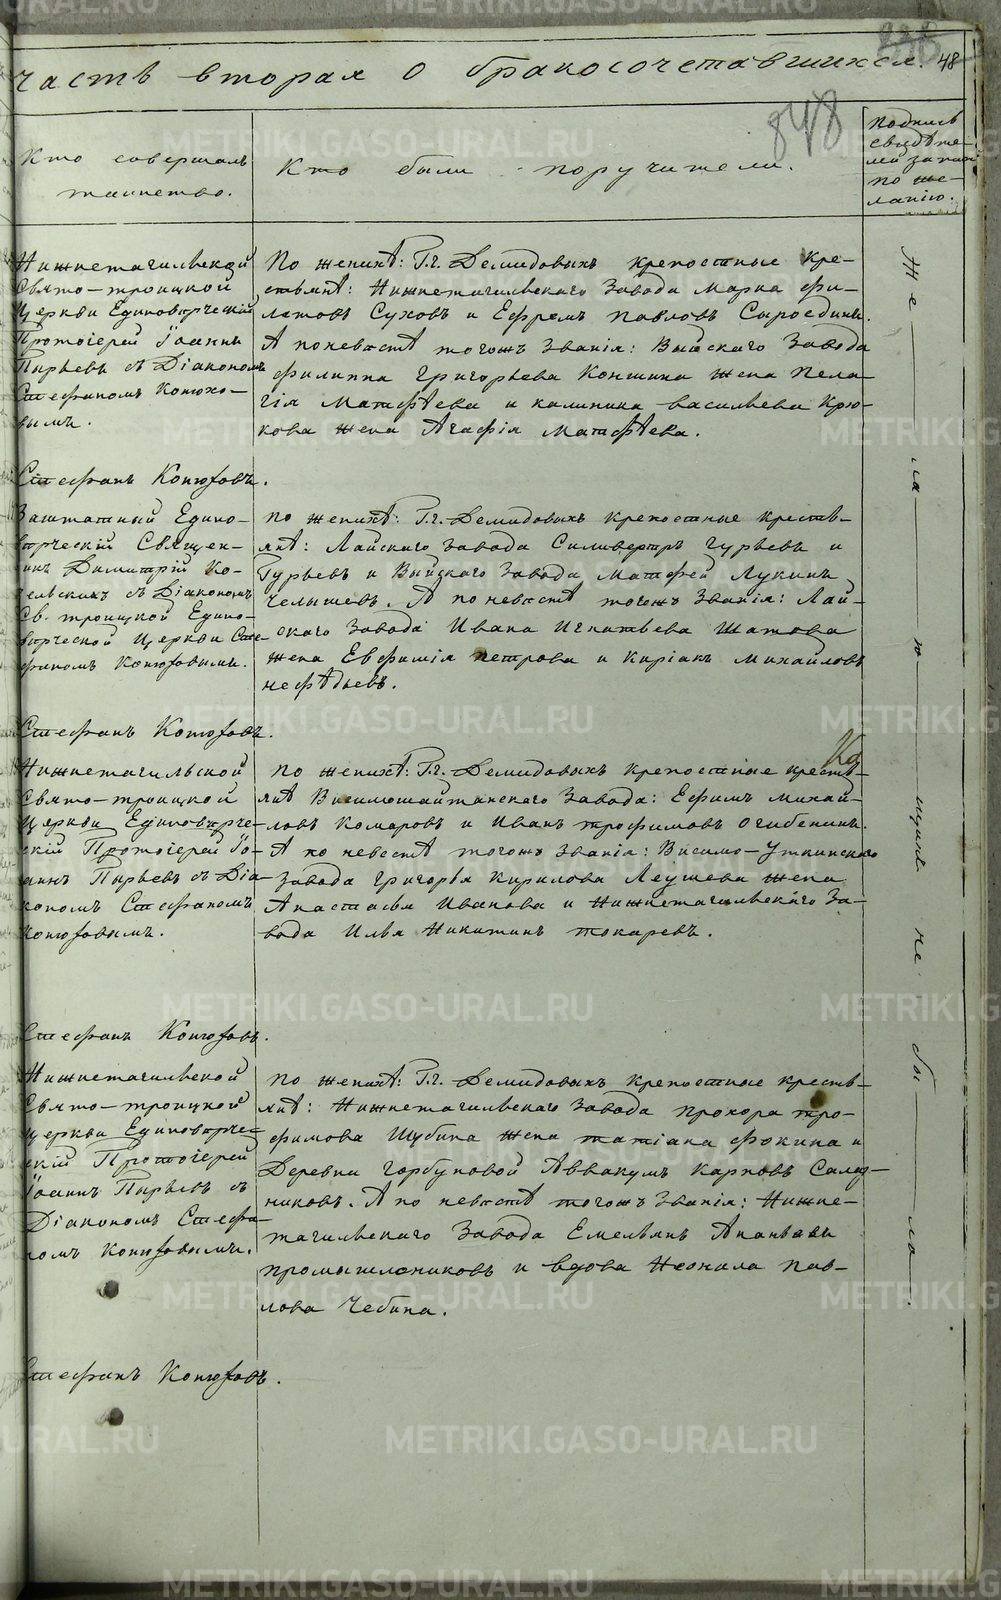 часть вторая о бракосочетавшихся.
48
848
Кто совершалъ
таинство.
Кто были поручители.
Подпись
свидѣте-
лей записи
по же-
ланію.
Нижнетагильской
Свято-троицкой
Церкви Единовѣрческій
Протоіерей Іоаннъ
Пырьевъ съ Діакономъ
Стефаномъ Конюхо-
вымъ.
Стефанъ Конюховъ.
По женихѣ: Г.г. Демидовыхъ крепостные кре-
стьянѣ: Нижнетагильскаго Завода Марка Фи-
латовъ Суховъ и Ефремъ Павловъ Сыроединъ.
А поневѣстѣ тогожъ званія: Выйскаго Завода
Филиппа Григорьева Коншина жена Пела-
гія Матфѣева и Калинина Васильева Крю-
кова жена Агафія Матфѣева.
Заштатный Едино-
вѣрческій Священ-
никъ Димитрій Ко-
тельскихъ съ Діакономъ
Св. троицкой Едино-
вѣрческой Церкви Сте-
фаномъ Конюховымъ.
Стефанъ Конюховъ.
По женихѣ: Г.г. Демидовыхъ крепостные кресть-
янѣ: Лайскаго завода Силивертръ Гурьевъ и
Гурьевъ и Выйскаго Завода Матфей Лукинъ
Челышевъ. А по невѣстѣ тогожъ званія: Лай-
скаго Завода Ивана Игнатьева Шатова
жена Евфимія Петрова и Киріакъ Михайловъ
Нефѣдьевъ.
Нижнетагильской
Свято-троицкой
Церкви Единовѣрче-
скій Протоіерей Іо-
аннъ Пырьевъ съ Діа-
кономъ Стефаномъ
Конюховымъ.
Стефанъ Конюховъ.
По женихѣ: Г.г. Демидовыхъ крепостные кресть-
янѣ Висимошайтанскаго Завода: Ефимъ Михай-
ловъ Комаровъ и Иванъ Трофимовъ Огибенинъ.
А по невестѣ тогожъ званія: Висимо-Уткинскаго
завода Григорья Кирилова Леушева жена
Анастасья Иванова и Нижнетагильскаго За-
вода Илья Никитинъ Токаревъ.
Нижнетагильской
Свято-троицкой
Церкви Единовѣрче-
скій Протоіерей
Іоаннъ Пырьевъ съ
Діакономъ Стефа-
номъ Конюховымъ.
Стефанъ Конюховъ.
По женихѣ: Г.г. Демидовыхъ крепостные кресть-
янѣ: Нижнетагильскаго Завода Прохора Тро-
фимова Шубина жена Татіана Фокина и
Деревни Горбуновой Аввакумъ Карповъ Салад-
никовъ. А по невѣстѣ тогожъ званія: Нижне-
тагильскаго Завода Емельянъ Ананьевъ
Промышлениковъ и вдова Неонила Пав-
лова Чебина.
Же ла ю щихъ не бы ло.
METRIKI.GASO-URAL.RU